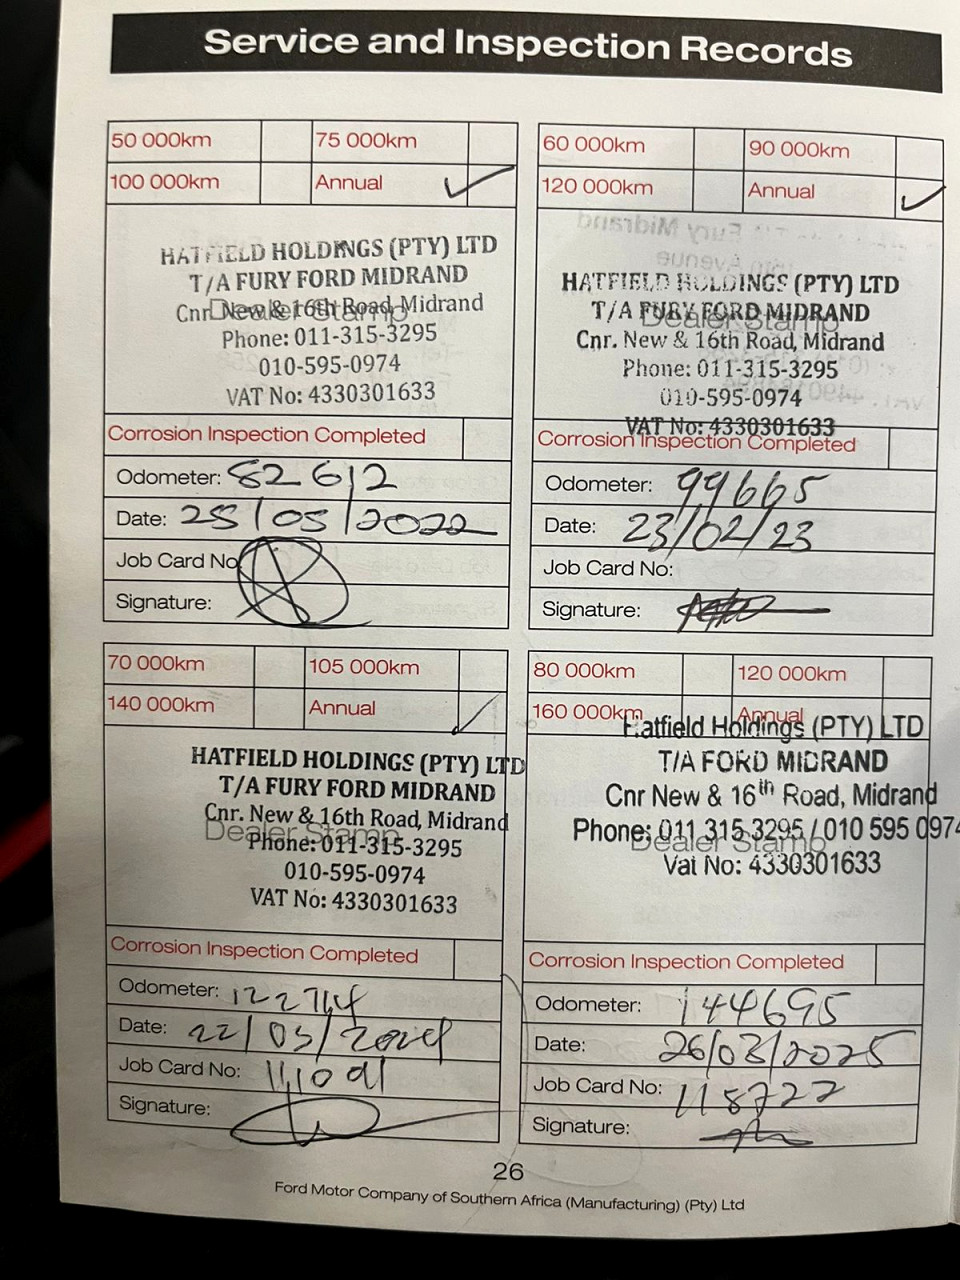 Service and Inspection Records
50 000km 75 000km
100 000km Annual
HATFIELD HOLDINGS (PTY) LTD
T/A FURY FORD MIDRAND
Cnr. New & 16th Road, Midrand
Dealer Stamp
Phone: 011-315-3295
010-595-0974
VAT No: 4330301633
Corrosion Inspection Completed
Odometer: 82612
Date: 25/05/2022
Job Card No
Signature:
60 000km 90 000km
120 000km Annual
HATFIELD HOLDINGS (PTY) LTD
T/A FURY FORD MIDRAND
Dealer Stamp
Cnr. New & 16th Road, Midrand
Phone: 011-315-3295
010-595-0974
VAT No: 4330301633
Corrosion Inspection Completed
Odometer: 99665
Date: 23/02/23
Job Card No:
Signature:
70 000km 105 000km
140 000km Annual
HATFIELD HOLDINGS (PTY) LTD
T/A FURY FORD MIDRAND
Cnr. New & 16th Road, Midrand
Dealer Stamp
Phone: 011-315-3295
010-595-0974
VAT No: 4330301633
Corrosion Inspection Completed
Odometer: 122714
Date: 22/03/2024
Job Card No:
Signature:
80 000km 120 000km
160 000km Annual
Hatfield Holdings (PTY) LTD
T/A FORD MIDRAND
Cnr New & 16th Road, Midrand
Phone: 011 315 3295 / 010 595 0974
Dealer Stamp
Vat No: 4330301633
Corrosion Inspection Completed
Odometer: 144695
Date: 26/03/2025
Job Card No: 118722
Signature:
26
Ford Motor Company of Southern Africa (Manufacturing) (Pty) Ltd